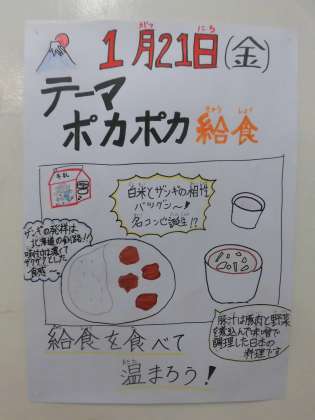 1月21日(金)
がつ にち
テーマ
ポカポカ給食
きゅう しょく
牛乳
白米とザンギの相性
バツグン〜!
名コンビ誕生!?
ザンギの発祥は
北海道の釧路!!
味付けは濃くて
ザクザクとした
食感
豚汁は豚肉と野菜
を煮込んで味噌で
調理した日本の
料理です
給食を食べて
温まろう!